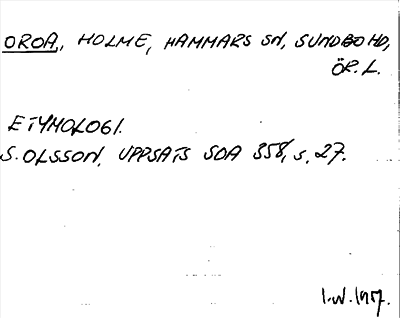 OROA, HOLME, HAMMARS SN, SUNDBO HD,
ÖR. L.
ETYMOLOGI.
S. OLSSON, UPPSATS SOA 358, s. 27.
I.W. 1957.